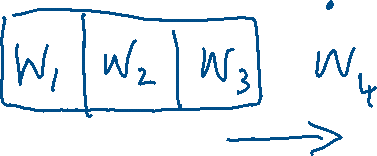 W₁ W₂ W₃ Ẇ₄